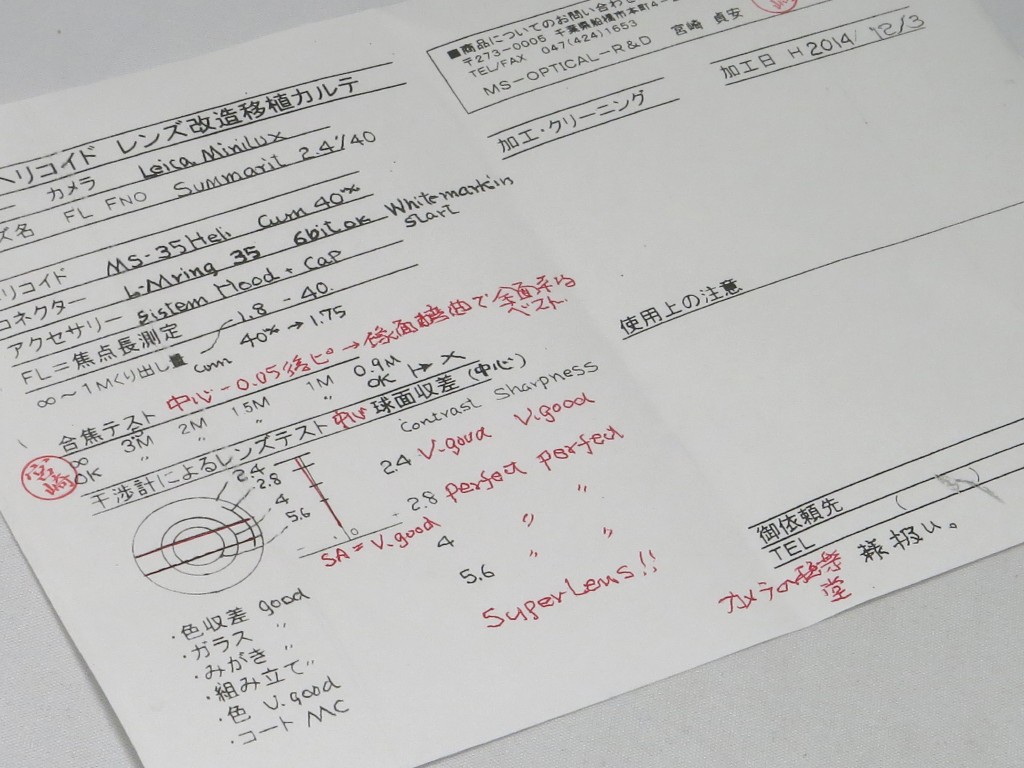 ヘリコイド レンズ改造移植カルテ
カメラ Leica Minilux
ズ名 FL FNO Summarit 2.4/40
リコイド MS-35Heli cum 40
コネクター L-Mring 35 6bit OK White markin start
アクセサリー Sistem Hood + Cap
FL=焦点長測定 1.8 - 40.
∞～1Mくり出し量 Cum 40 → 1.75
中心-0.05後ピ→像面湾曲で全画系はベスト.
合焦テスト
∞ 3M 2M 1.5M 1M 0.9M
OK 〃 〃 〃 〃 OK
宮崎
干渉計によるレンズテスト 中心 球面収差(中心)
Contrast Sharpness
2.4 2.4 V.good V.good
2.8 2.8 perfect perfect
4 4 〃 〃
5.6 5.6 〃 〃
0
SA = V.good
Super Lens!!
・色収差 good
・ガラス 〃
・みがき 〃
・組み立て 〃
・色 V.good
・コート MC
■商品についてのお問い合わせ
〒273-0005 千葉県船橋市本町4-2
TEL/FAX 047(424)1653
MS-OPTICAL-R&D 宮崎 貞安
加工日 H 2014/ 12/3
加工・クリーニング
使用上の注意
御依頼先
TEL
カメラの極楽堂 様扱い。